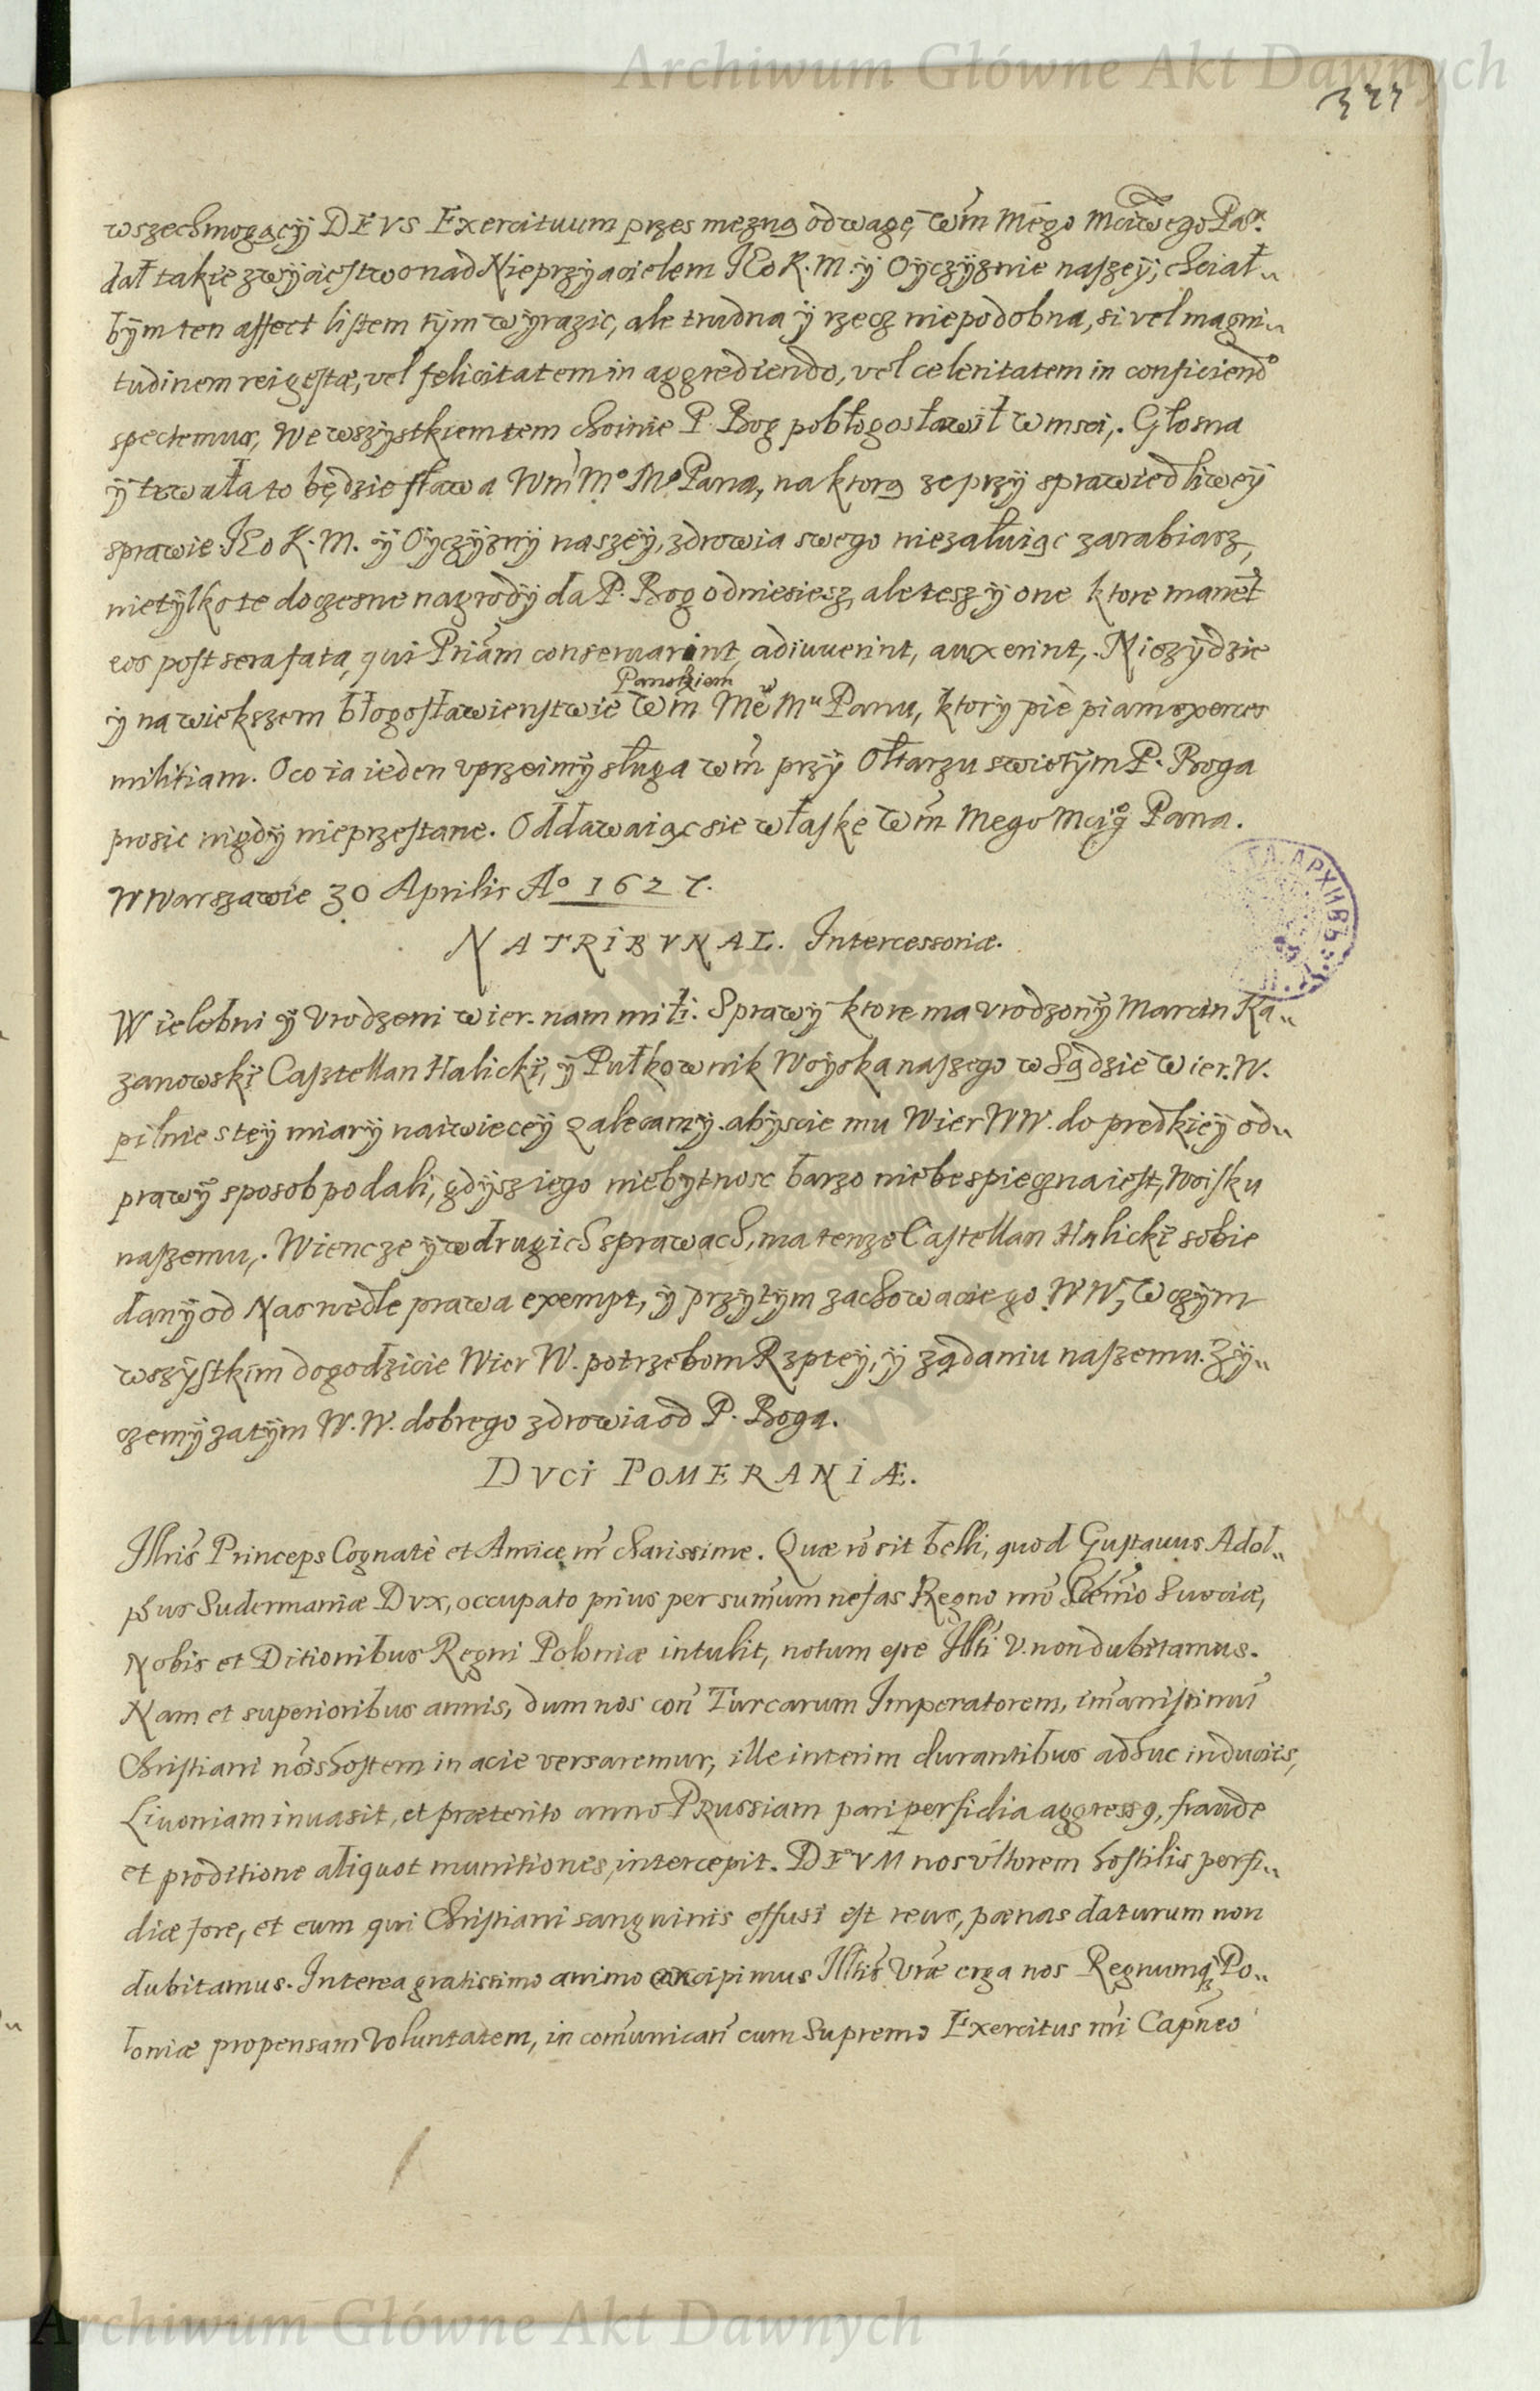 Archiwum Główne Akt Dawnych
377
wszechmogący DEVS Exercituum przes mezną odwagę Wm̃ Mego Mciwego Pa.
dał takie zwycięstwo nad Nieprzyacielem JEo K. M. ÿ Oyczÿznie naszeÿ, chciał„
bÿm ten affect listem tÿm wyrazic, ale trudna ÿ rzecz niepodobna, si vel magni„
tudinem rei gestæ, vel felicitatem in aggrediendo, vel celeritatem in conficiendo
spectemus, We wszÿstkiem tem choinie P. Bog pobłogosławił wmsci,. Głosna
ÿ trwała to będzie sława Wm̃ Mo Mo Pana, na ktorą ze przÿ sprawiedliweÿ
sprawie JEo K. M. ÿ Oyczÿznÿ naszeÿ, zdrowia swego nieżałuiąc zarabiasz,
nietÿlko te doczesne nagrodÿ da P. Bog odniesiesz, ale tesz ÿ one ktore manẽt
eos post sera fata, qui Pri̇ãm conseruarint, adiuuerint, auxerint,. Niezÿdzie
Panskiem
ÿ na wiekszem błogosławienstwie Wm̃ Mẽ Mu Panu, ktorÿ pie piam exerces
militiam. Oco ia ieden vprzeimÿ sługa wm̃ przÿ Ołtarzu swiotÿm P. Boga
prosic nigdÿ nieprzestane. Oddawaiąc sie w łaske Wm̃ Mego Mcigo Pana.
W Warszawie 30 Aprilis Ao 1627.
NA TRIBVNAL. Intercessoriæ.
Wielebni ÿ Vrodzeni wier. nam mili. Sprawÿ ktore ma vrodzonÿ Marcin Ka„
zanowski Casztellan Halicki, ÿ Pułkownik Woÿska naszego w Sądzie Wier. W.
pilnie s teÿ miarÿ naiwieceÿ zalecamÿ. abÿscie mu Wier WW. do predkieÿ od„
prawÿ sposob podali, gdÿsz iego niebytnosc barzo niebespieczna iest, Woisku
naszemu,. Wiencze ÿ w drugich sprawach, ma tenze Castellan Halicki sobie
danÿ od Nas wedle prawa exempt, ÿ przÿ tÿm zachowacie go WW, W czÿm
wszÿstkim dogodzicie Wier W. potrzebom Rzpteÿ, ÿ żądaniu naszemu. Zÿ„
czemÿ zatÿm W. W. dobrego zdrowia od P. Boga.
DVCI POMERANIÆ.
Illris̃ Princeps Cognate et Amice nr̃ charissime. Quæ rõ sit belli, quod Gustauus Adol„
phus Sudermaniæ Dvx, occupato prius per sum̃um nefas Regno nrõ Suæciæ,
Nobis et Ditionibus Regni Poloniæ intulit, notum esse Illti V. non dubitamus.
Nam et superioribus annis, dum nos con̄ Turcarum Imperatorem, im̃anissimũ
Christiani nõis hostem in acie versaremur, ille interim durantibus adhuc induciis,
Liuoniam inuasit, et præterito anno PRussiam pari perfidia aggressus, fraude
et proditione aliquot munitiones, intercepit. DEVM nos vltorem hostilis perfi„
diæ fore, et eum qui Christiani sanguinis effusi est reus, pœnas daturum non
dubitamus. Interea gratissimo animo accipimus Illtis̃ Vræ erga nos Regnumq; Po„
loniæ propensam Voluntatem, in com̃unicañ cum Supremo Exercitus nrĩ Capñeo
Archiwum Główne Akt Dawnych